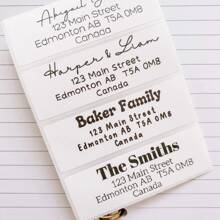 Abigail
123 Main Street
Edmonton AB T5A 0M8
Canada
Harper & Liam
123 Main Street
Edmonton AB T5A 0M8
Canada
Baker Family
123 Main Street
Edmonton AB T5A 0M8
Canada
The Smiths
123 Main Street
Edmonton AB T5A 0M8
Canada